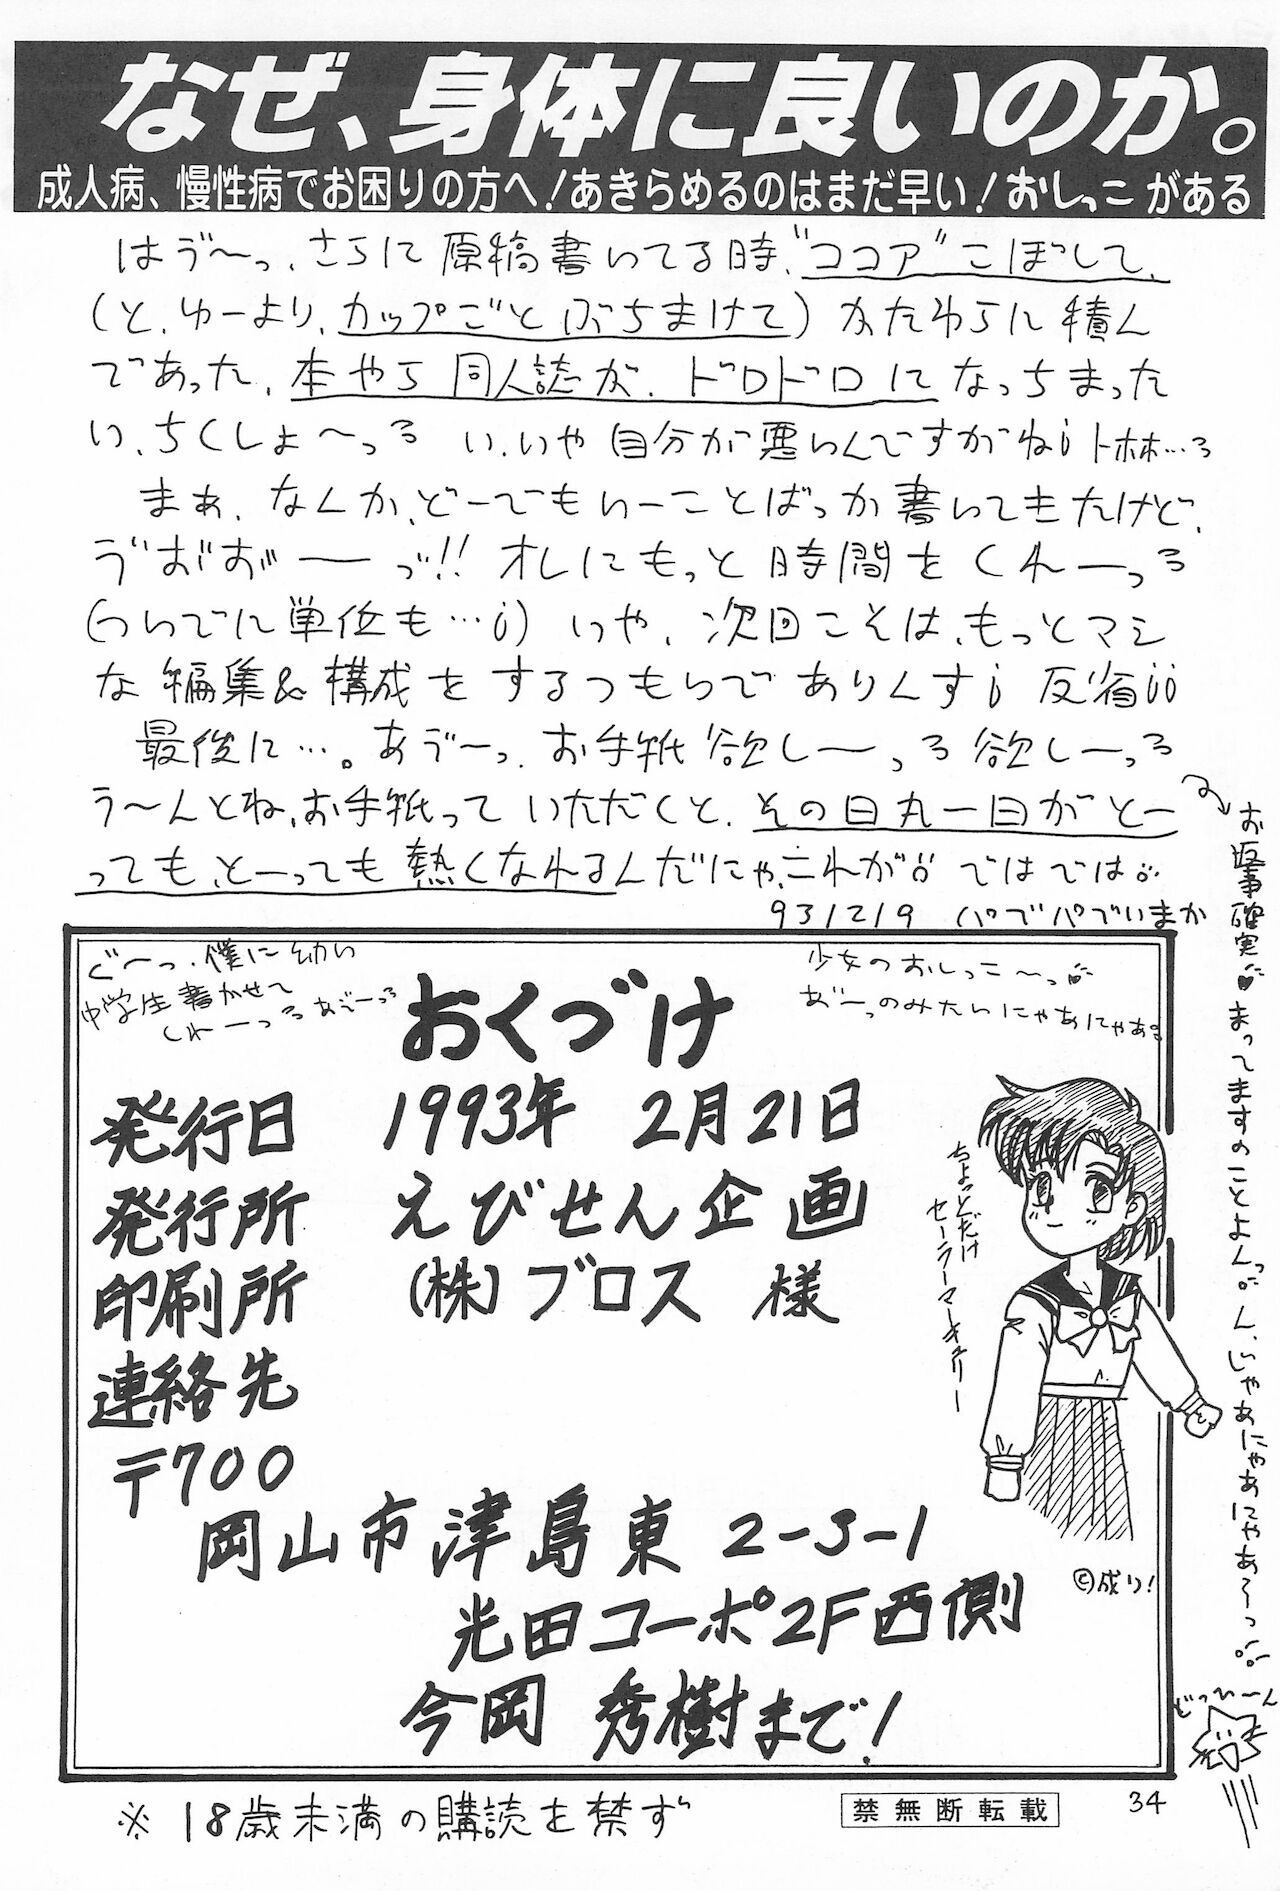 なぜ、身体に良いのか。
成人病、慢性病でお困りの方へ!あきらめるのはまだ早い!おしっこがある
はゔ〜っ、さらに原稿書いてる時、"ココア"こぼして、
(と、ゆーより、カップごとぶちまけて)かたわらに積ん
であった、本やら同人誌が、ドロドロになっちまった
い、ちくしょ〜っ い、いや自分が悪いんですがね トホホ…
まぁ、なんか、どーでもいーことばっか書いてきたけど、
ゔおおーっ!!オレにもっと時間をくれーっ
(ついでに単位も…)いや、次回こそは、もっとマシ
な編集&構成をするつもりでありんす 反省
最後に…。あゔーっ、お手紙欲しーっ欲しーっ
う〜んとね、お手紙っていただくと、その日丸一日がとー
っても、とーっても熱くなれるんだにゃ、これが ではでは
93/2/9 パブパブいまか
お返事確実 まってますのことよんっ ん、いゃあにゃあにゃあ〜っ
どっひーん
おくづけ
発行日 1993年 2月21日
発行所 えびせん企画
印刷所 (株)ブロス 様
連絡先
〒700
岡山市津島東 2-3-1
光田コーポ2F西側
今岡 秀樹まで!
ちょっとだけ
セーラーマーキュリー
©成り!
※18歳未満の購読を禁ず
禁無断転載
34